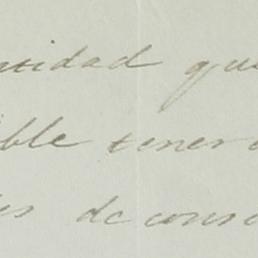 ntidad que
ible tener
es de cons